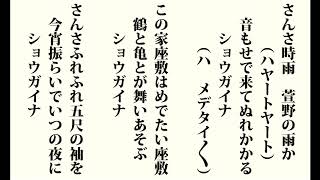 さんさ時雨　萱野の雨か
（ハヤートヤート）
音もせで来てぬれかかる
ショウガイナ
（ハ　メデタイ〳〵）
この家座敷はめでたい座敷
鶴と亀とが舞いあそぶ
ショウガイナ
さんさふれふれ五尺の袖を
今宵振らいでいつの夜に
ショウガイナ